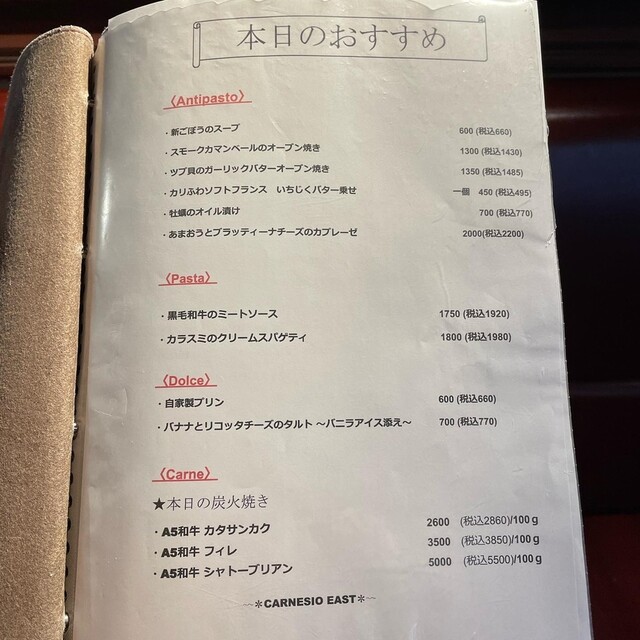 本日のおすすめ
〈Antipasto〉
・新ごぼうのスープ 600 (税込660)
・スモークカマンベールのオーブン焼き 1300 (税込1430)
・ツブ貝のガーリックバターオーブン焼き 1350 (税込1485)
・カリふわソフトフランス　いちじくバター乗せ 一個 450 (税込495)
・牡蠣のオイル漬け 700 (税込770)
・あまおうとブラッティーナチーズのカプレーゼ 2000(税込2200)
〈Pasta〉
・黒毛和牛のミートソース 1750 (税込1920)
・カラスミのクリームスパゲティ 1800 (税込1980)
〈Dolce〉
・自家製プリン 600 (税込660)
・バナナとリコッタチーズのタルト ～バニラアイス添え～ 700 (税込770)
〈Carne〉
★本日の炭火焼き
・A5和牛 カタサンカク 2600 (税込2860)/100ｇ
・A5和牛 フィレ 3500 (税込3850)/100ｇ
・A5和牛 シャトーブリアン 5000 (税込5500)/100ｇ
～＊CARNESIO EAST＊～